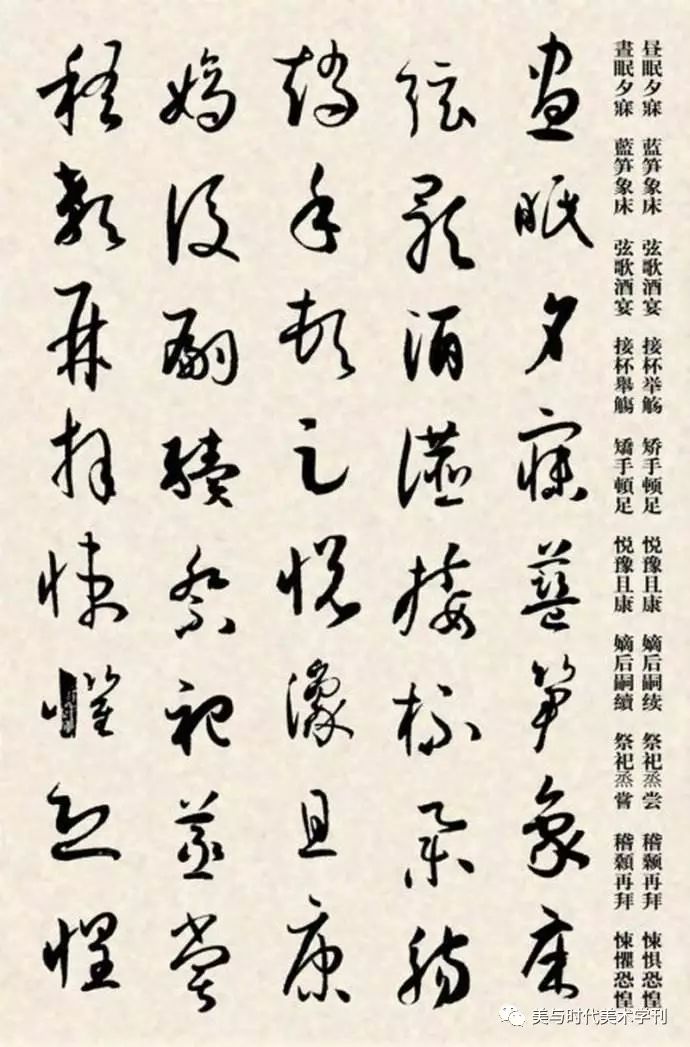 昼眠夕寐 蓝笋象床 弦歌酒宴 接杯举觞 矫手顿足 悦豫且康 嫡后嗣续 祭祀烝尝 稽颡再拜 悚惧恐惶
晝眠夕寐 藍笋象床 弦歌酒宴 接杯舉觴 矯手頓足 悦豫且康 嫡后嗣續 祭祀烝嘗 稽顙再拜 悚懼恐惶
晝眠夕寐藍笋象床
弦歌酒讌接杯舉觴
矯手頓足悦豫且康
嫡後嗣續祭祀蒸嘗
稽顙再拜悚懼恐惶
美与时代美术学刊